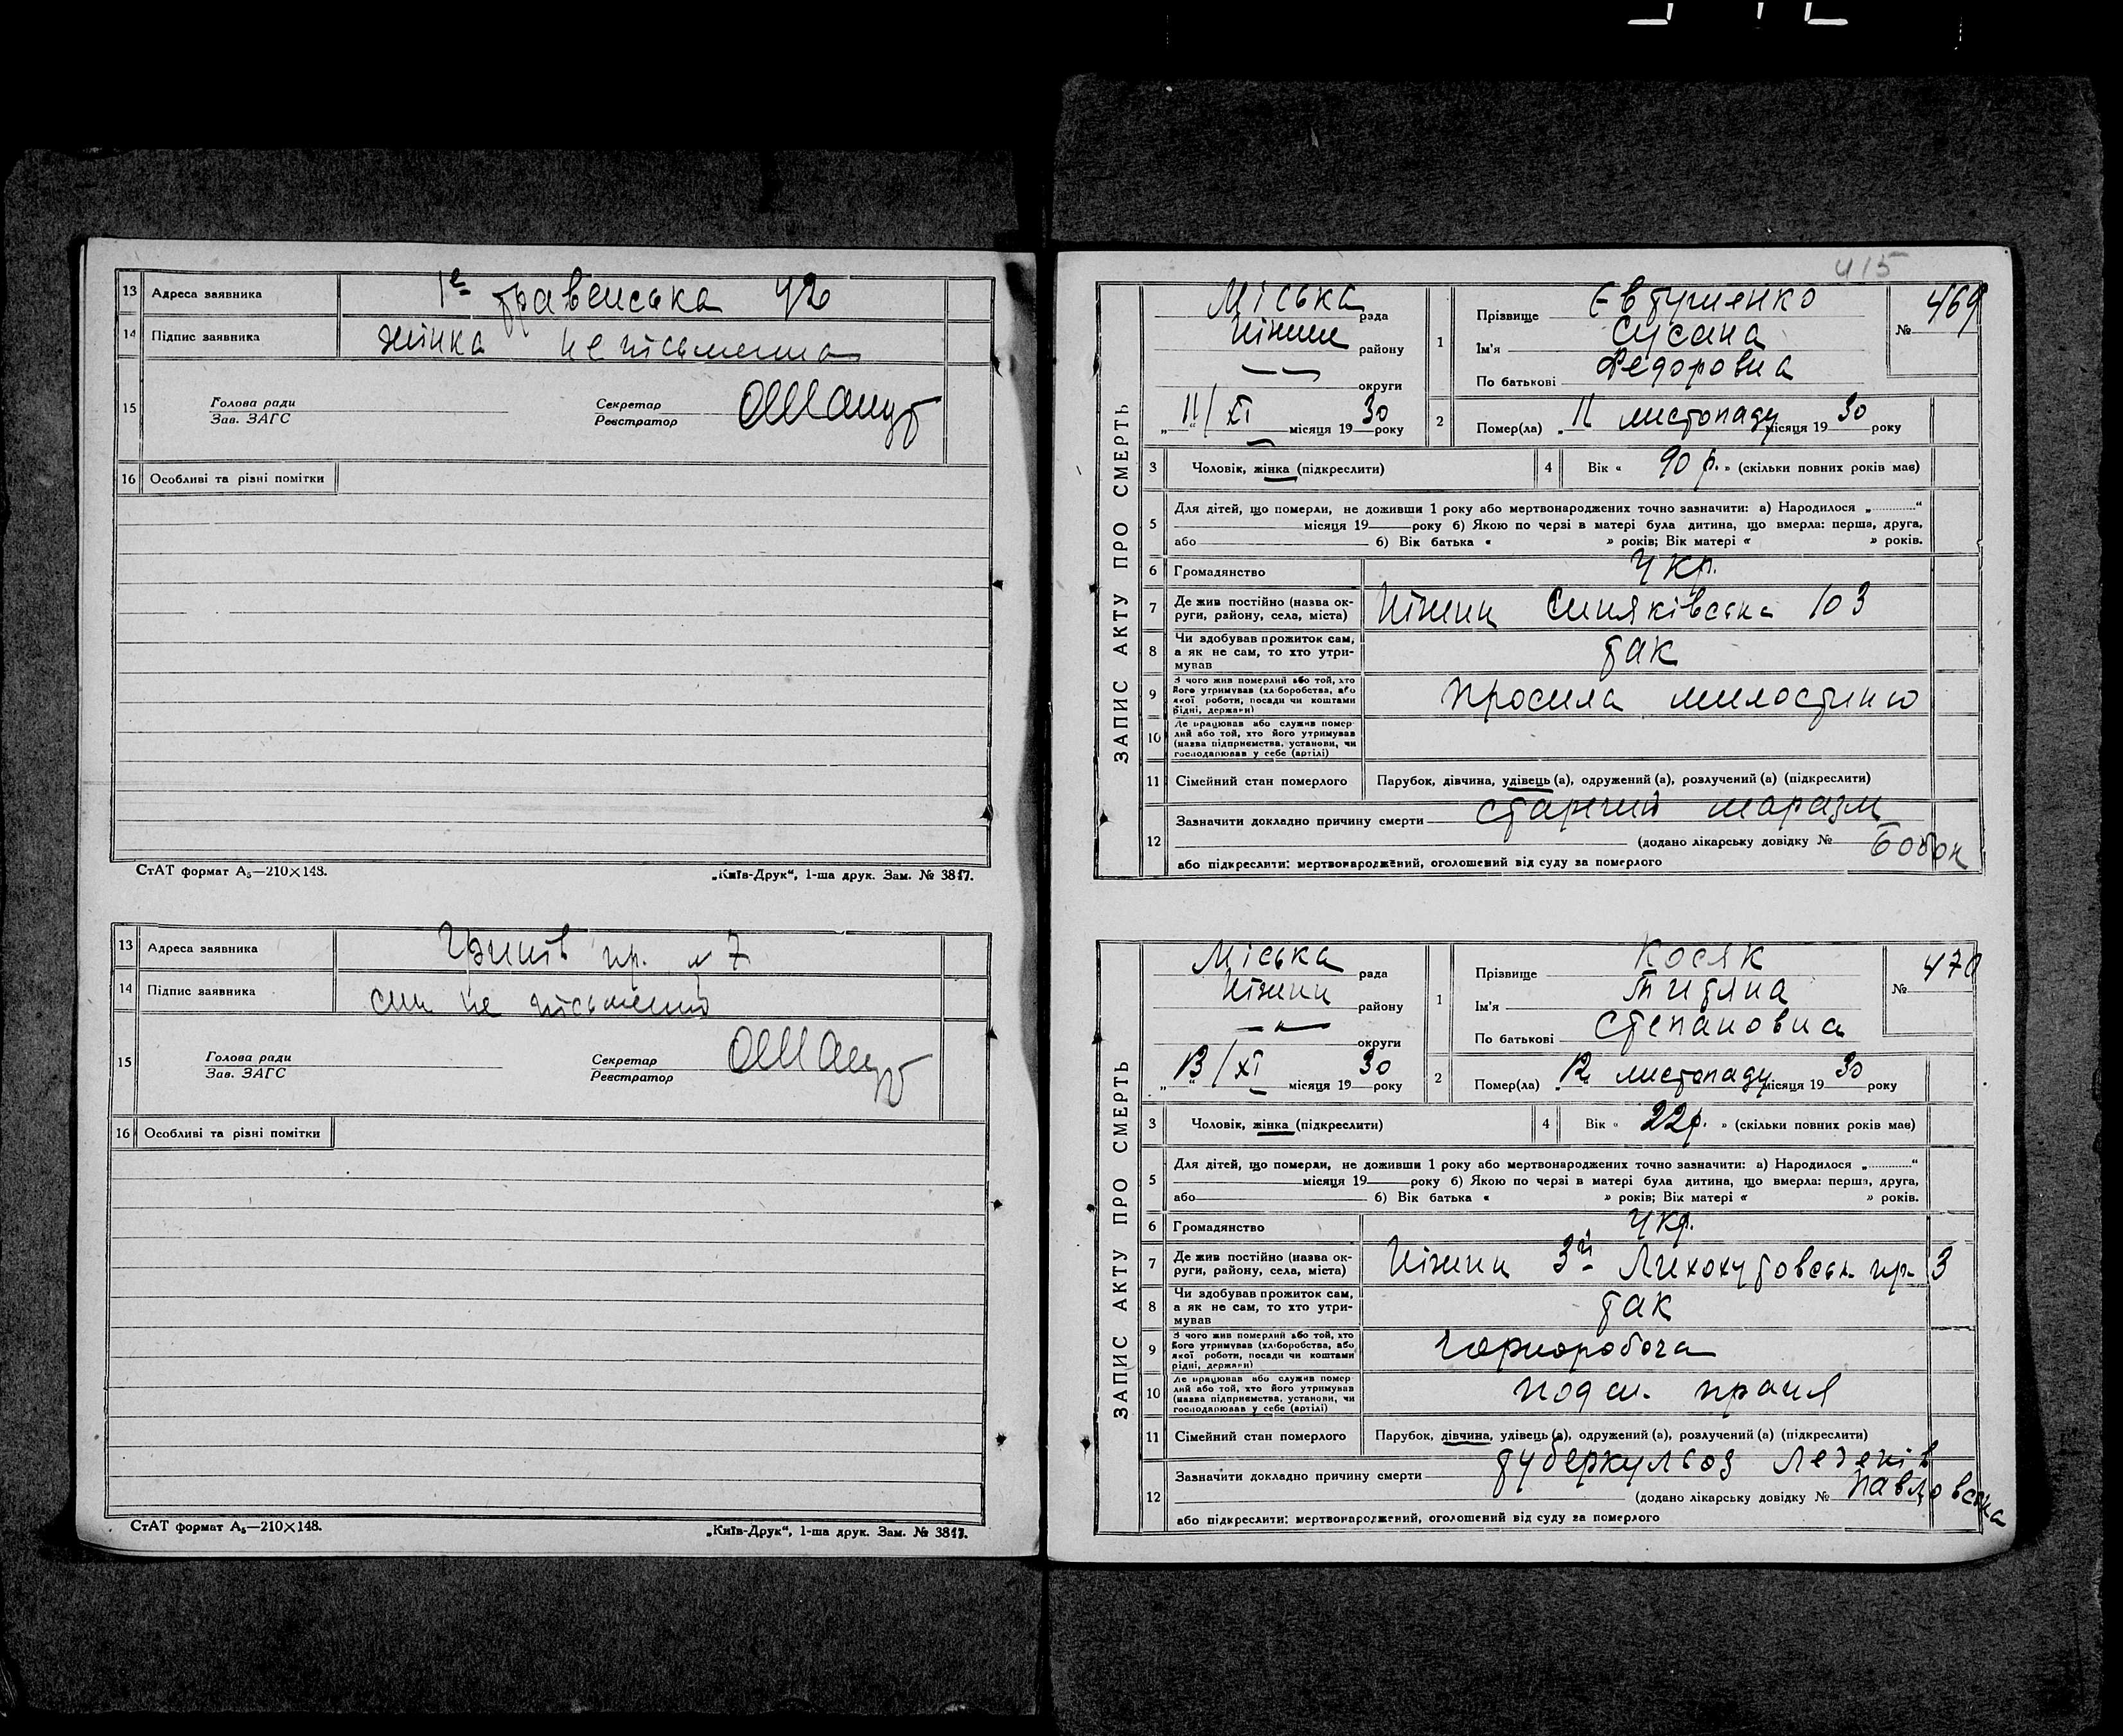 13 Адреса заявника 1е травенська 42
14 Підпис заявника жінка не письменна
15 Голова ради
Зав. ЗАГС
Секретар
Реєстратор
16 Особливі та різні помітки
СтАТ формат А₅—210×148.
„Київ-Друк“, 1-ша друк. Зам. № 3817.
13 Адреса заявника пр. № 7
14 Підпис заявника син не письменно
15 Голова ради
Зав. ЗАГС
Секретар
Реєстратор
16 Особливі та різні помітки
СтАТ формат А₅—210×148.
„Київ-Друк“, 1-ша друк. Зам. № 3817.
415
ЗАПИС АКТУ ПРО СМЕРТЬ
Міська рада
Ніжин району
округи
„ 11/XI місяця 1930 року
1 Прізвище Євтушенко
Ім'я Сусана
По батькові Федоровна
№ 469
2 Помер(ла) 11 листопаду місяця 1930 року
3 Чоловік, жінка (підкреслити)
4 Вік « 90 р. » (скільки повних років має)
5 Для дітей, що померли, не доживши 1 року або мертвонароджених точно зазначити: а) Народилося „ “
місяця 19 року б) Якою по черзі в матері була дитина, що вмерла: перша, друга,
або б) Вік батька « » років; Вік матері « » років.
6 Громадянство Укр.
7 Де жив постійно (назва округи, району, села, міста) Ніжин Синяківська 103
8 Чи здобував прожиток сам, а як не сам, то хто утримував так
9 З чого жив померлий або той, хто його утримував (хліборобства, або якої роботи, посади чи коштами рідні, держави) просила милостиню
10 Де працював або служив померлий або той, хто його утримував (назва підприємства, установи, чи господарював у себе (артілі)
11 Сімейний стан померлого Парубок, дівчина, удівець (а), одружений (а), розлучений (а) (підкреслити)
12 Зазначити докладно причину смерти старчий маразм
(додано лікарську довідку № Бобок
або підкреслити: мертвонароджений, оголошений від суду за померлого
ЗАПИС АКТУ ПРО СМЕРТЬ
Міська рада
Ніжин району
округи
„ 13/XI місяця 1930 року
1 Прізвище Косяк
Ім'я Титяна
По батькові Степановна
№ 470
2 Помер(ла) 12 листопаду місяця 1930 року
3 Чоловік, жінка (підкреслити)
4 Вік « 22 р. » (скільки повних років має)
5 Для дітей, що померли, не доживши 1 року або мертвонароджених точно зазначити: а) Народилося „ “
місяця 19 року б) Якою по черзі в матері була дитина, що вмерла: перша, друга,
або б) Вік батька « » років; Вік матері « » років.
6 Громадянство Укр.
7 Де жив постійно (назва округи, району, села, міста) Ніжин 3й пр. 3
8 Чи здобував прожиток сам, а як не сам, то хто утримував так
9 З чого жив померлий або той, хто його утримував (хліборобства, або якої роботи, посади чи коштами рідні, держави) чорноробоча
10 Де працював або служив померлий або той, хто його утримував (назва підприємства, установи, чи господарював у себе (артілі) праця
11 Сімейний стан померлого Парубок, дівчина, удівець (а), одружений (а), розлучений (а) (підкреслити)
12 Зазначити докладно причину смерти туберкульоз легенів
(додано лікарську довідку № Павловська
або підкреслити: мертвонароджений, оголошений від суду за померлого